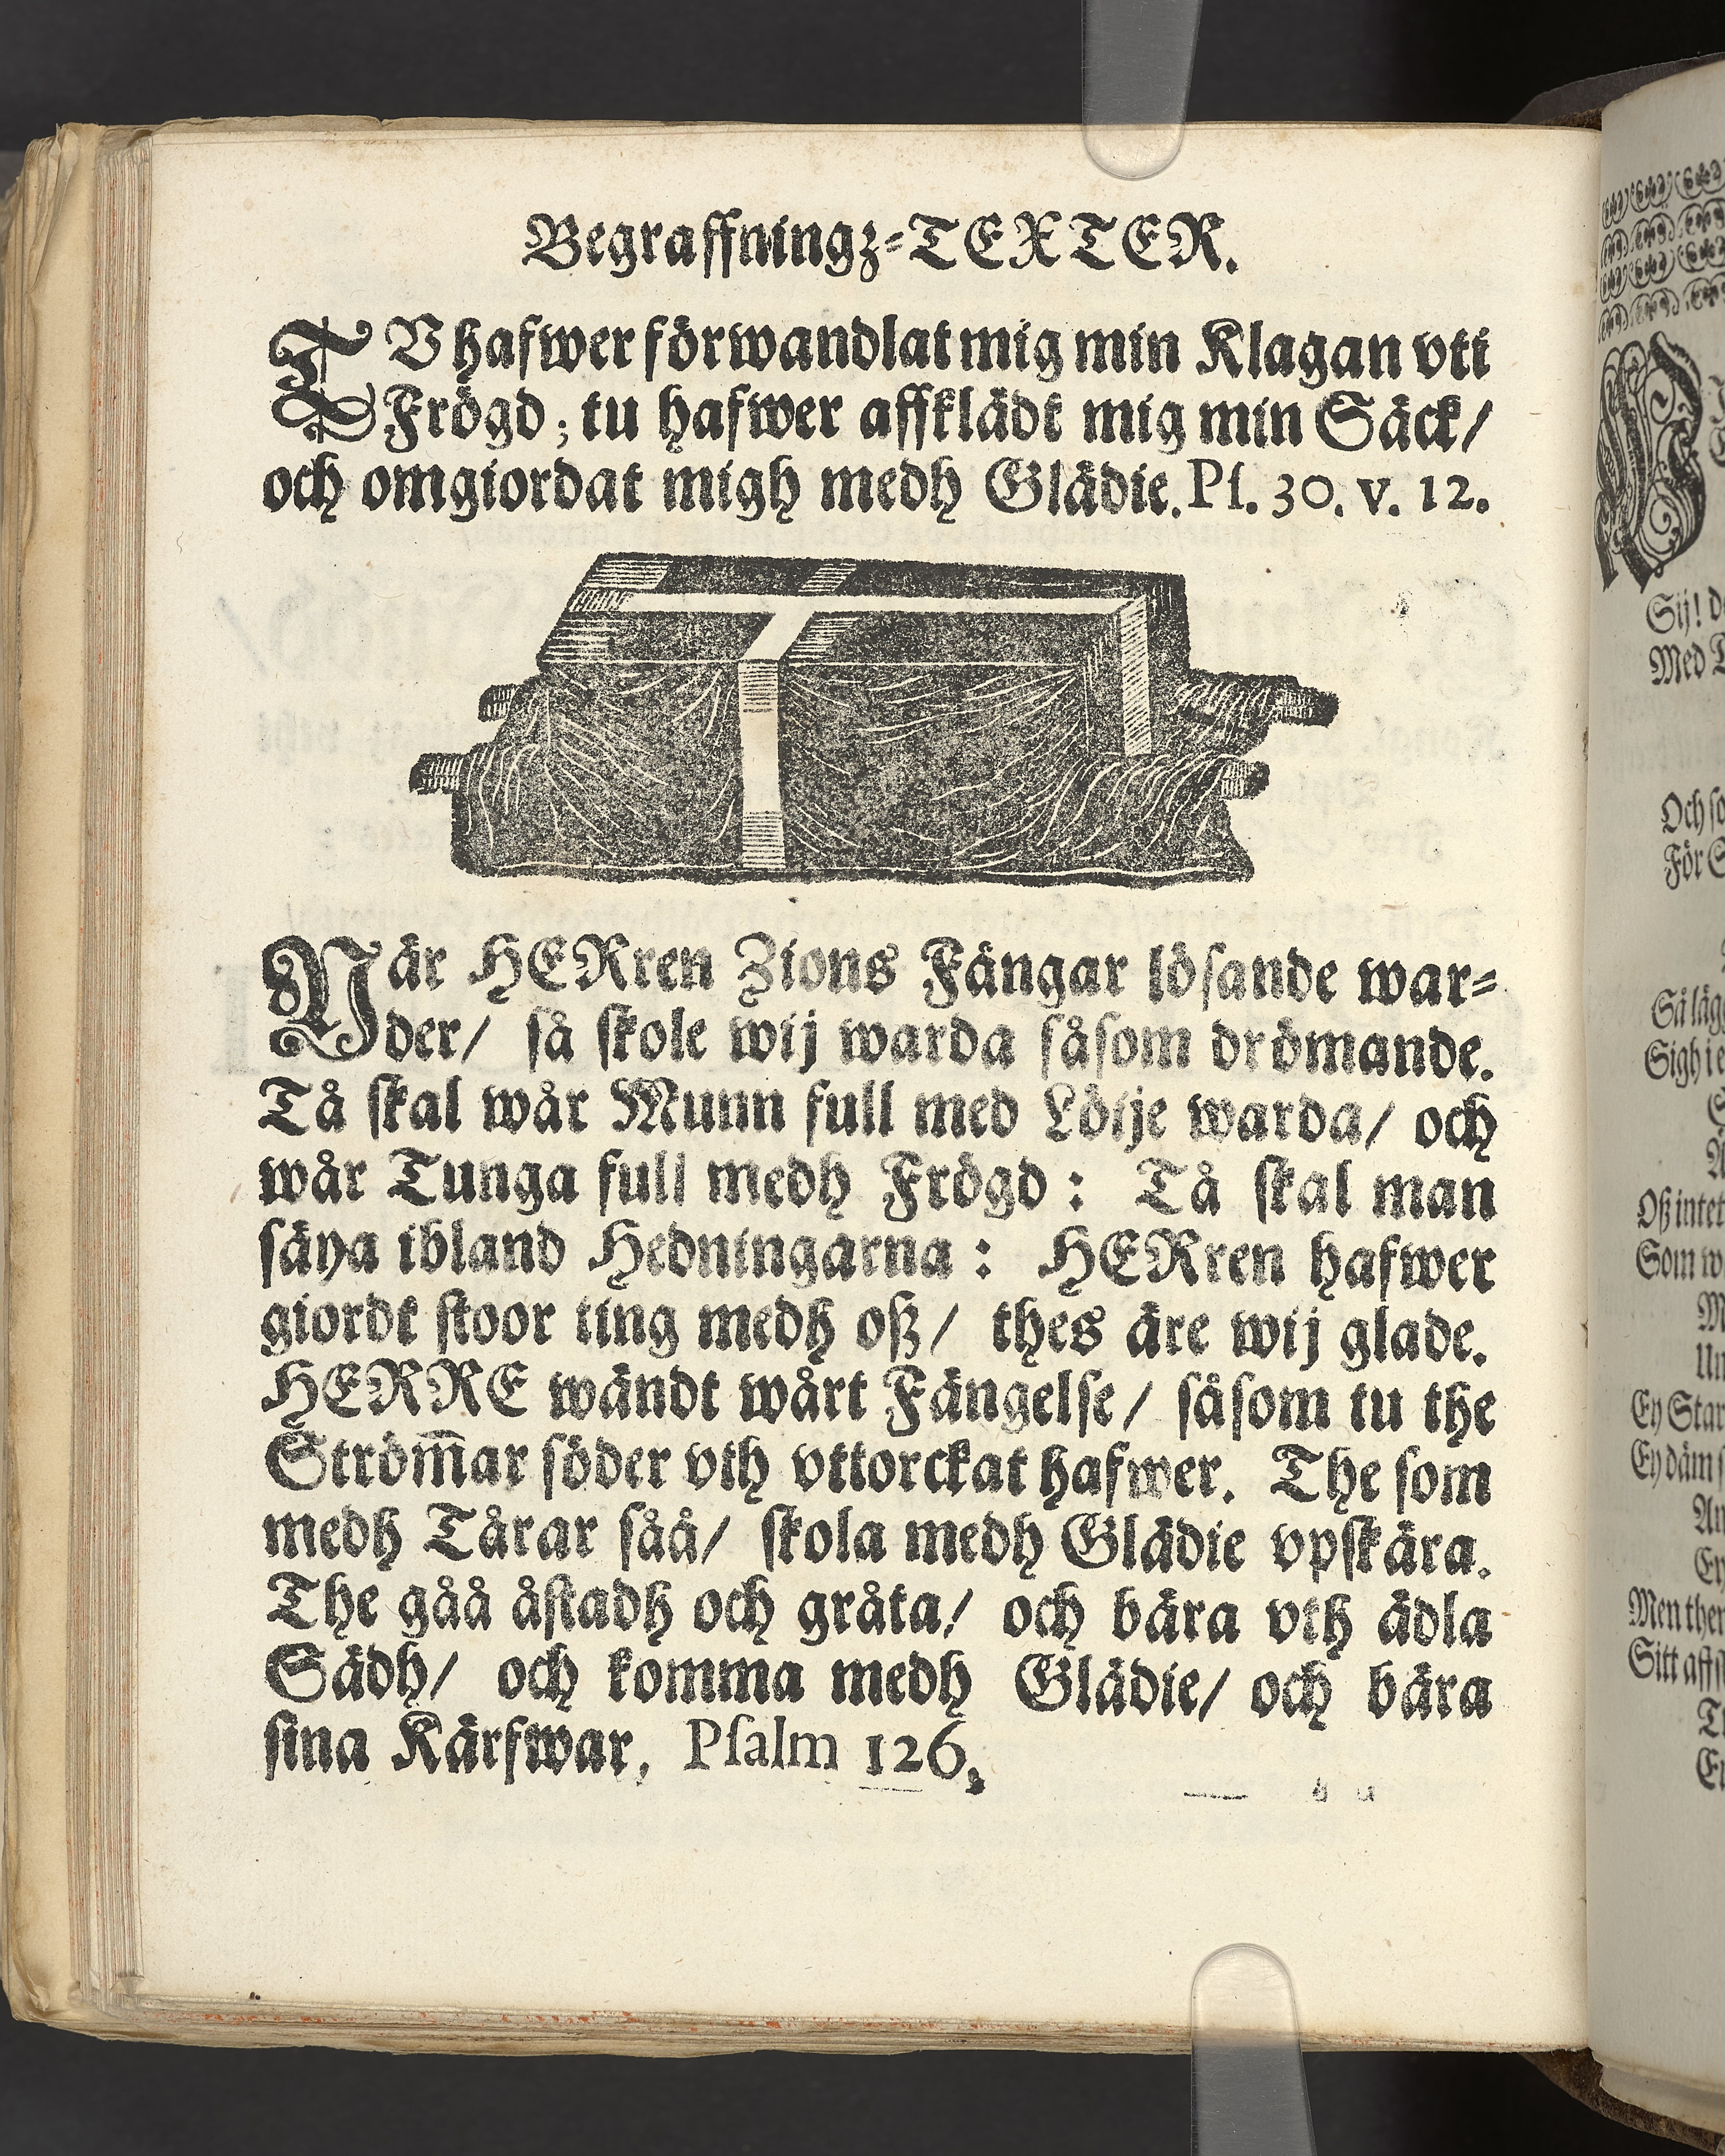 Begraffningz-TEXTER.
TV hafwer förwandlat mig min Klagan vti
Frögd; tu hafwer affklädt mig min Säck/
och omgiordat migh medh Glädie. Ps. 30. v. 12.
När HERren Zions Fångar lösande war-
der/ så skole wij warda såsom drömande.
Tå skal wår Munn full med Löije warda/ och
wår Tunga full medh Frögd: Tå skal man
säya ibland Hedningarna: HERren hafwer
giordt stoor ting medh oß/ thes äre wij glade.
HERRE wändt wårt Fängelse/ såsom tu the
Ström̄ar söder vth vttorckat hafwer. The som
medh Tårar såå/ skola medh Glädie vpskära.
The gåå åstadh och gråta/ och bära vth ädla
Sädh/ och komma medh Glädie/ och bära
sina Kärfwar, Psalm 126.
Sij!
Med
Och
För
Så
Sigh
Oß intet
Som
Ey
Ey däm
Men
Sitt